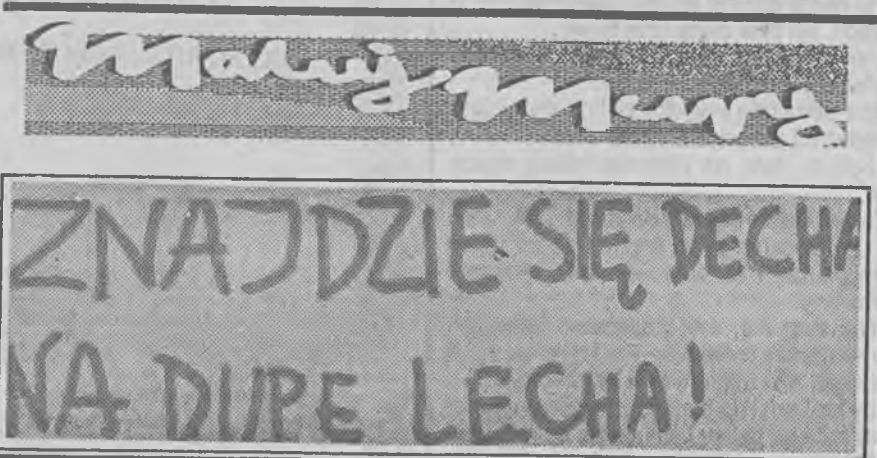 Maluj Mury
ZNAJDZIE SIĘ DECHA
NA DUPE LECHA!